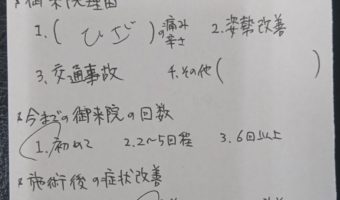 ※御来院理由
1.( ひざ )の痛み 辛さ 2.姿勢改善
3.交通事故 4.その他( )
※今までの御来院の回数
1.初めて 2.2〜5回程 3.6回以上
※施術後の症状改善